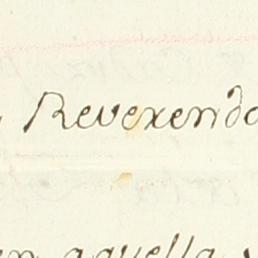 Reverendo
en aquella